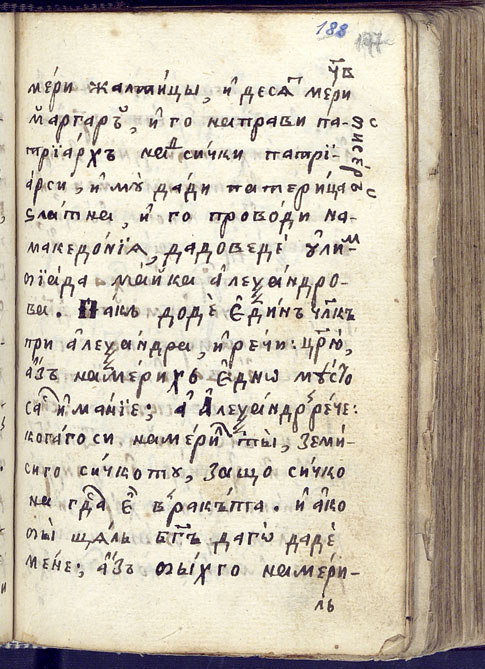 188
197
у҃в
мери жалтици, и҆ десѧⷮ мери
ма́ргаръ, и҆ го направи па-
трїархъ наⷣ сички патрї-
арси, и҆ мꙋ дади патерица
златна, и҆ го проводи на-
македонїѧ, да доведе ᲂу҆лиⷨ-
пїада майка а҆леѯандро-
ва. Пакъ доде е҆динъ чл҃къ
при а҆леѯандра, и҆ речи: цр҃ю,
а҆зъ намерихъ е҆дно мѣсто
са и҆манїе; а҆ А҆леѯандръ рече:
когаго си намериⷧ ты, земи-
сиго сичкоту, защо сичко
на гдⷭ҇а е҆ в ракѣта. и҆ а҆ко
ты щѧлъ бг҃ъ даго даде
мене; а҆зъ тыхго намери-
лъ
бисеръ